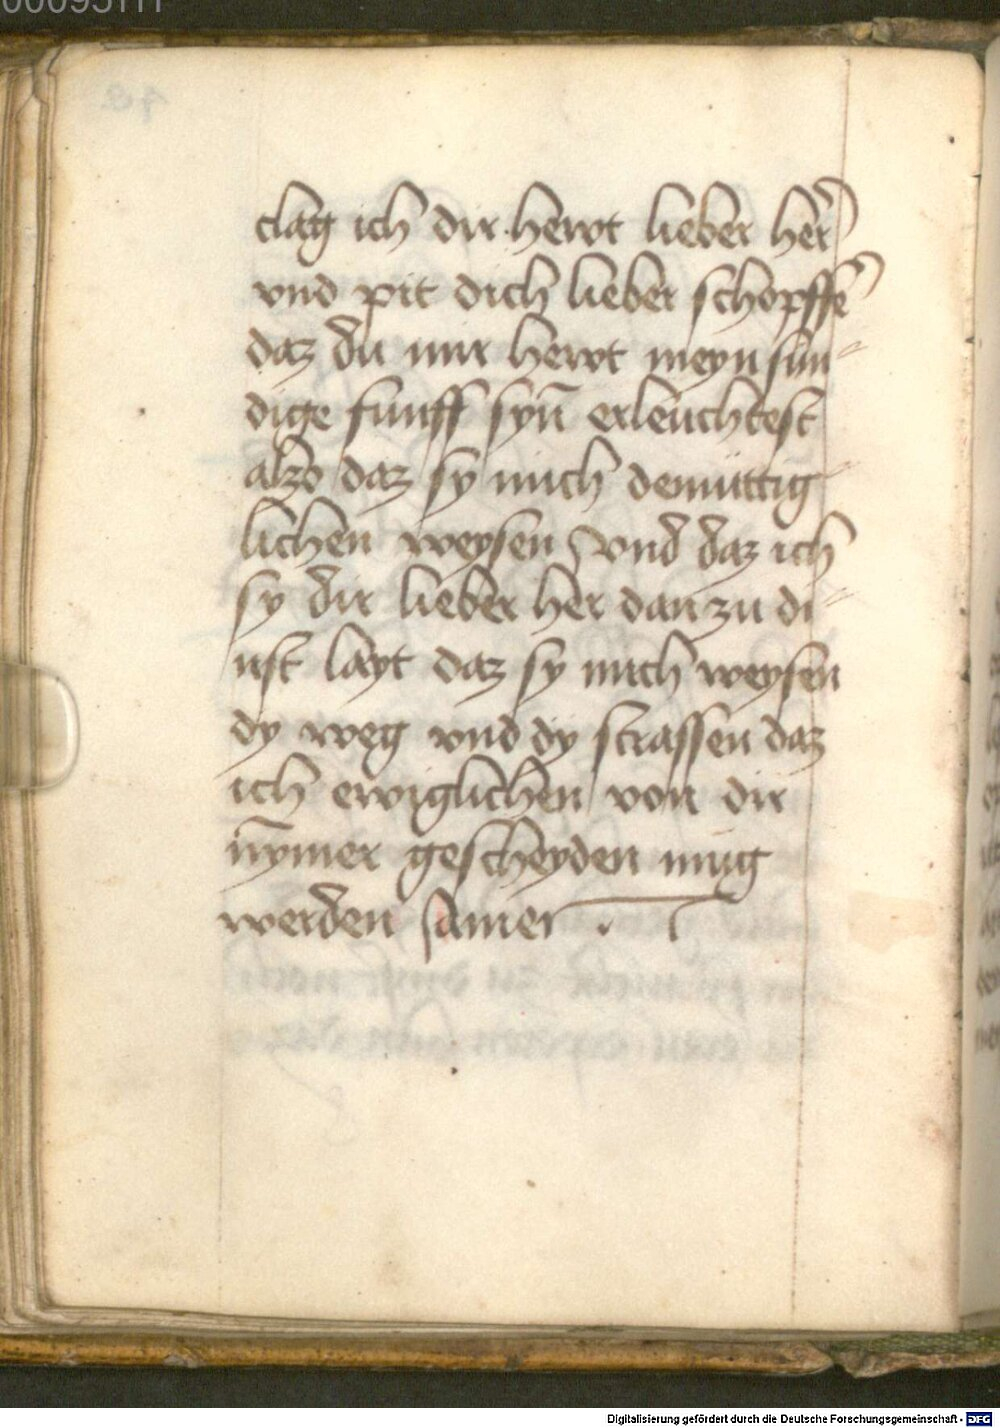 clag ich dir hewt lieber her̄
vnd pit dich lieber schopffe᷑
daz du mir hewt meyn sun-
dige funff syn̄ erleuchtest
alzo daz sy mich demuttig-
lichen weysen Vnd daz ich
sy dir lieber her dan zu di-
nst layt daz sy mich weysen
dy weg vnd dy strassen daz
ich ewiglichen von dir
nȳmer gescheyden mug
werden Amen
Digitalisierung gefördert durch die Deutsche Forschungsgemeinschaft - DFG